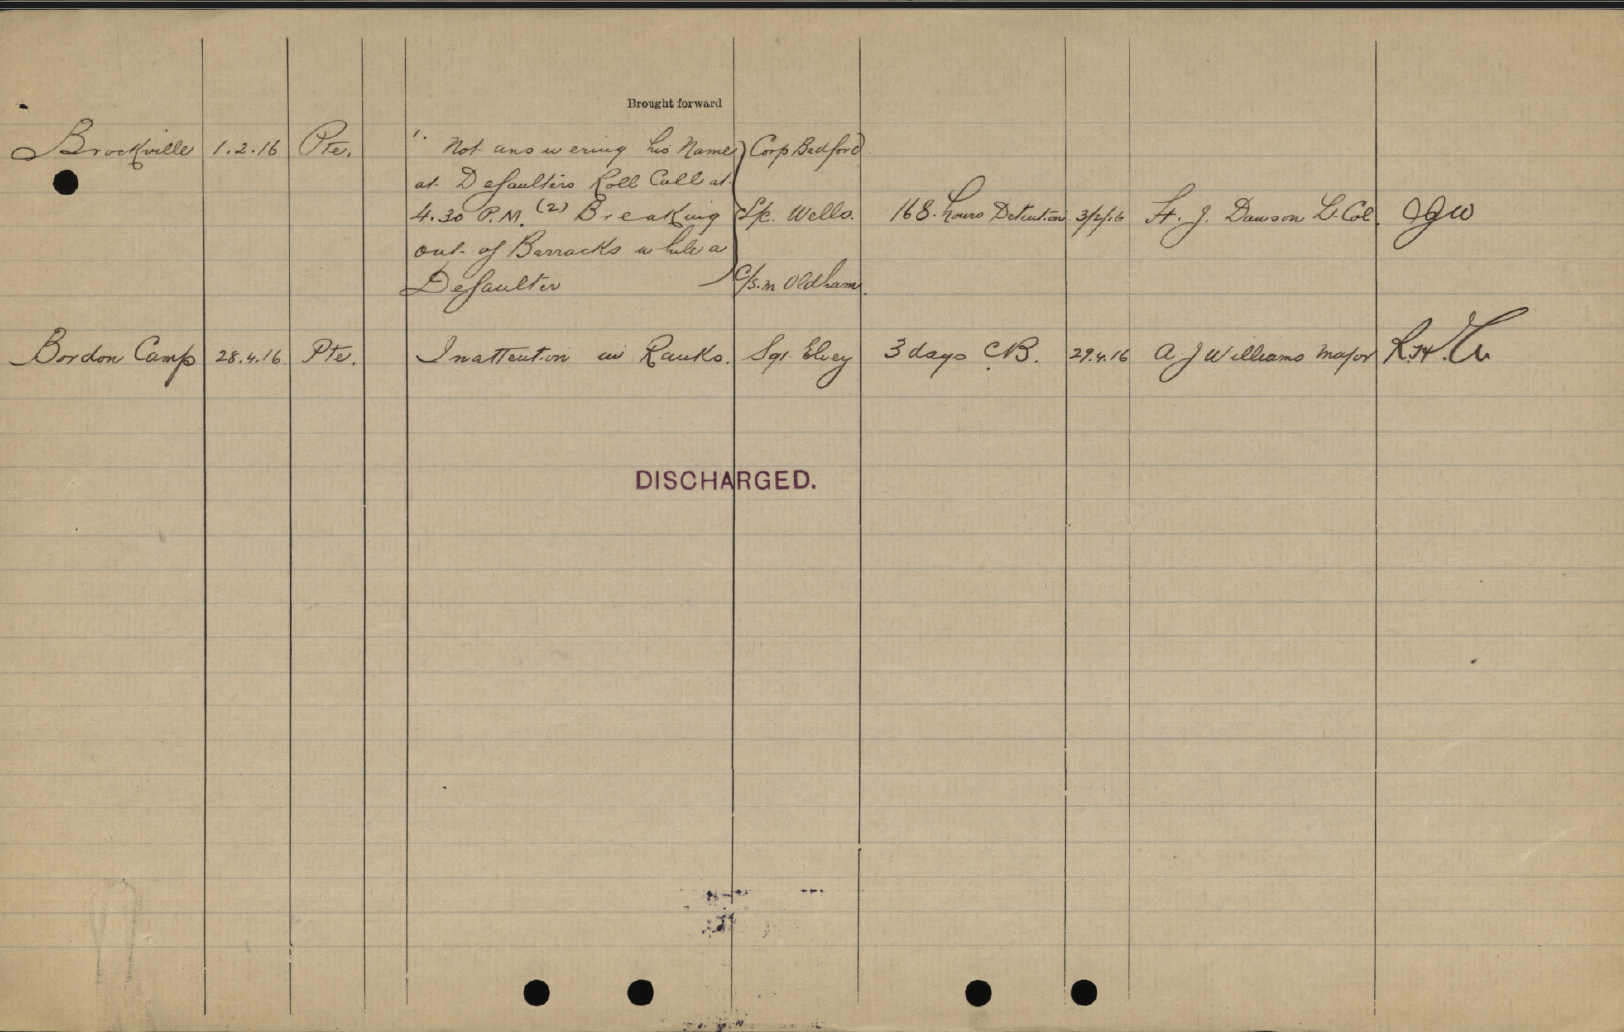 Brought forward
Brockville 1.2.16 Pte. 1. Not answering his Name Corp Bedford
at Defaulters Roll Call at
4.30 P.M. (2) Breaking Wells. 168 hours Detention 3/2/16 Dawson Lt. Col JJW
out of Barracks while a
Defaulter C/S.M Oldham.
Bordon Camp 28.4.16 Pte. Inattention in Ranks. Sgt Elvey 3 days C.B. 29.4.16 A J Williams Major
DISCHARGED.